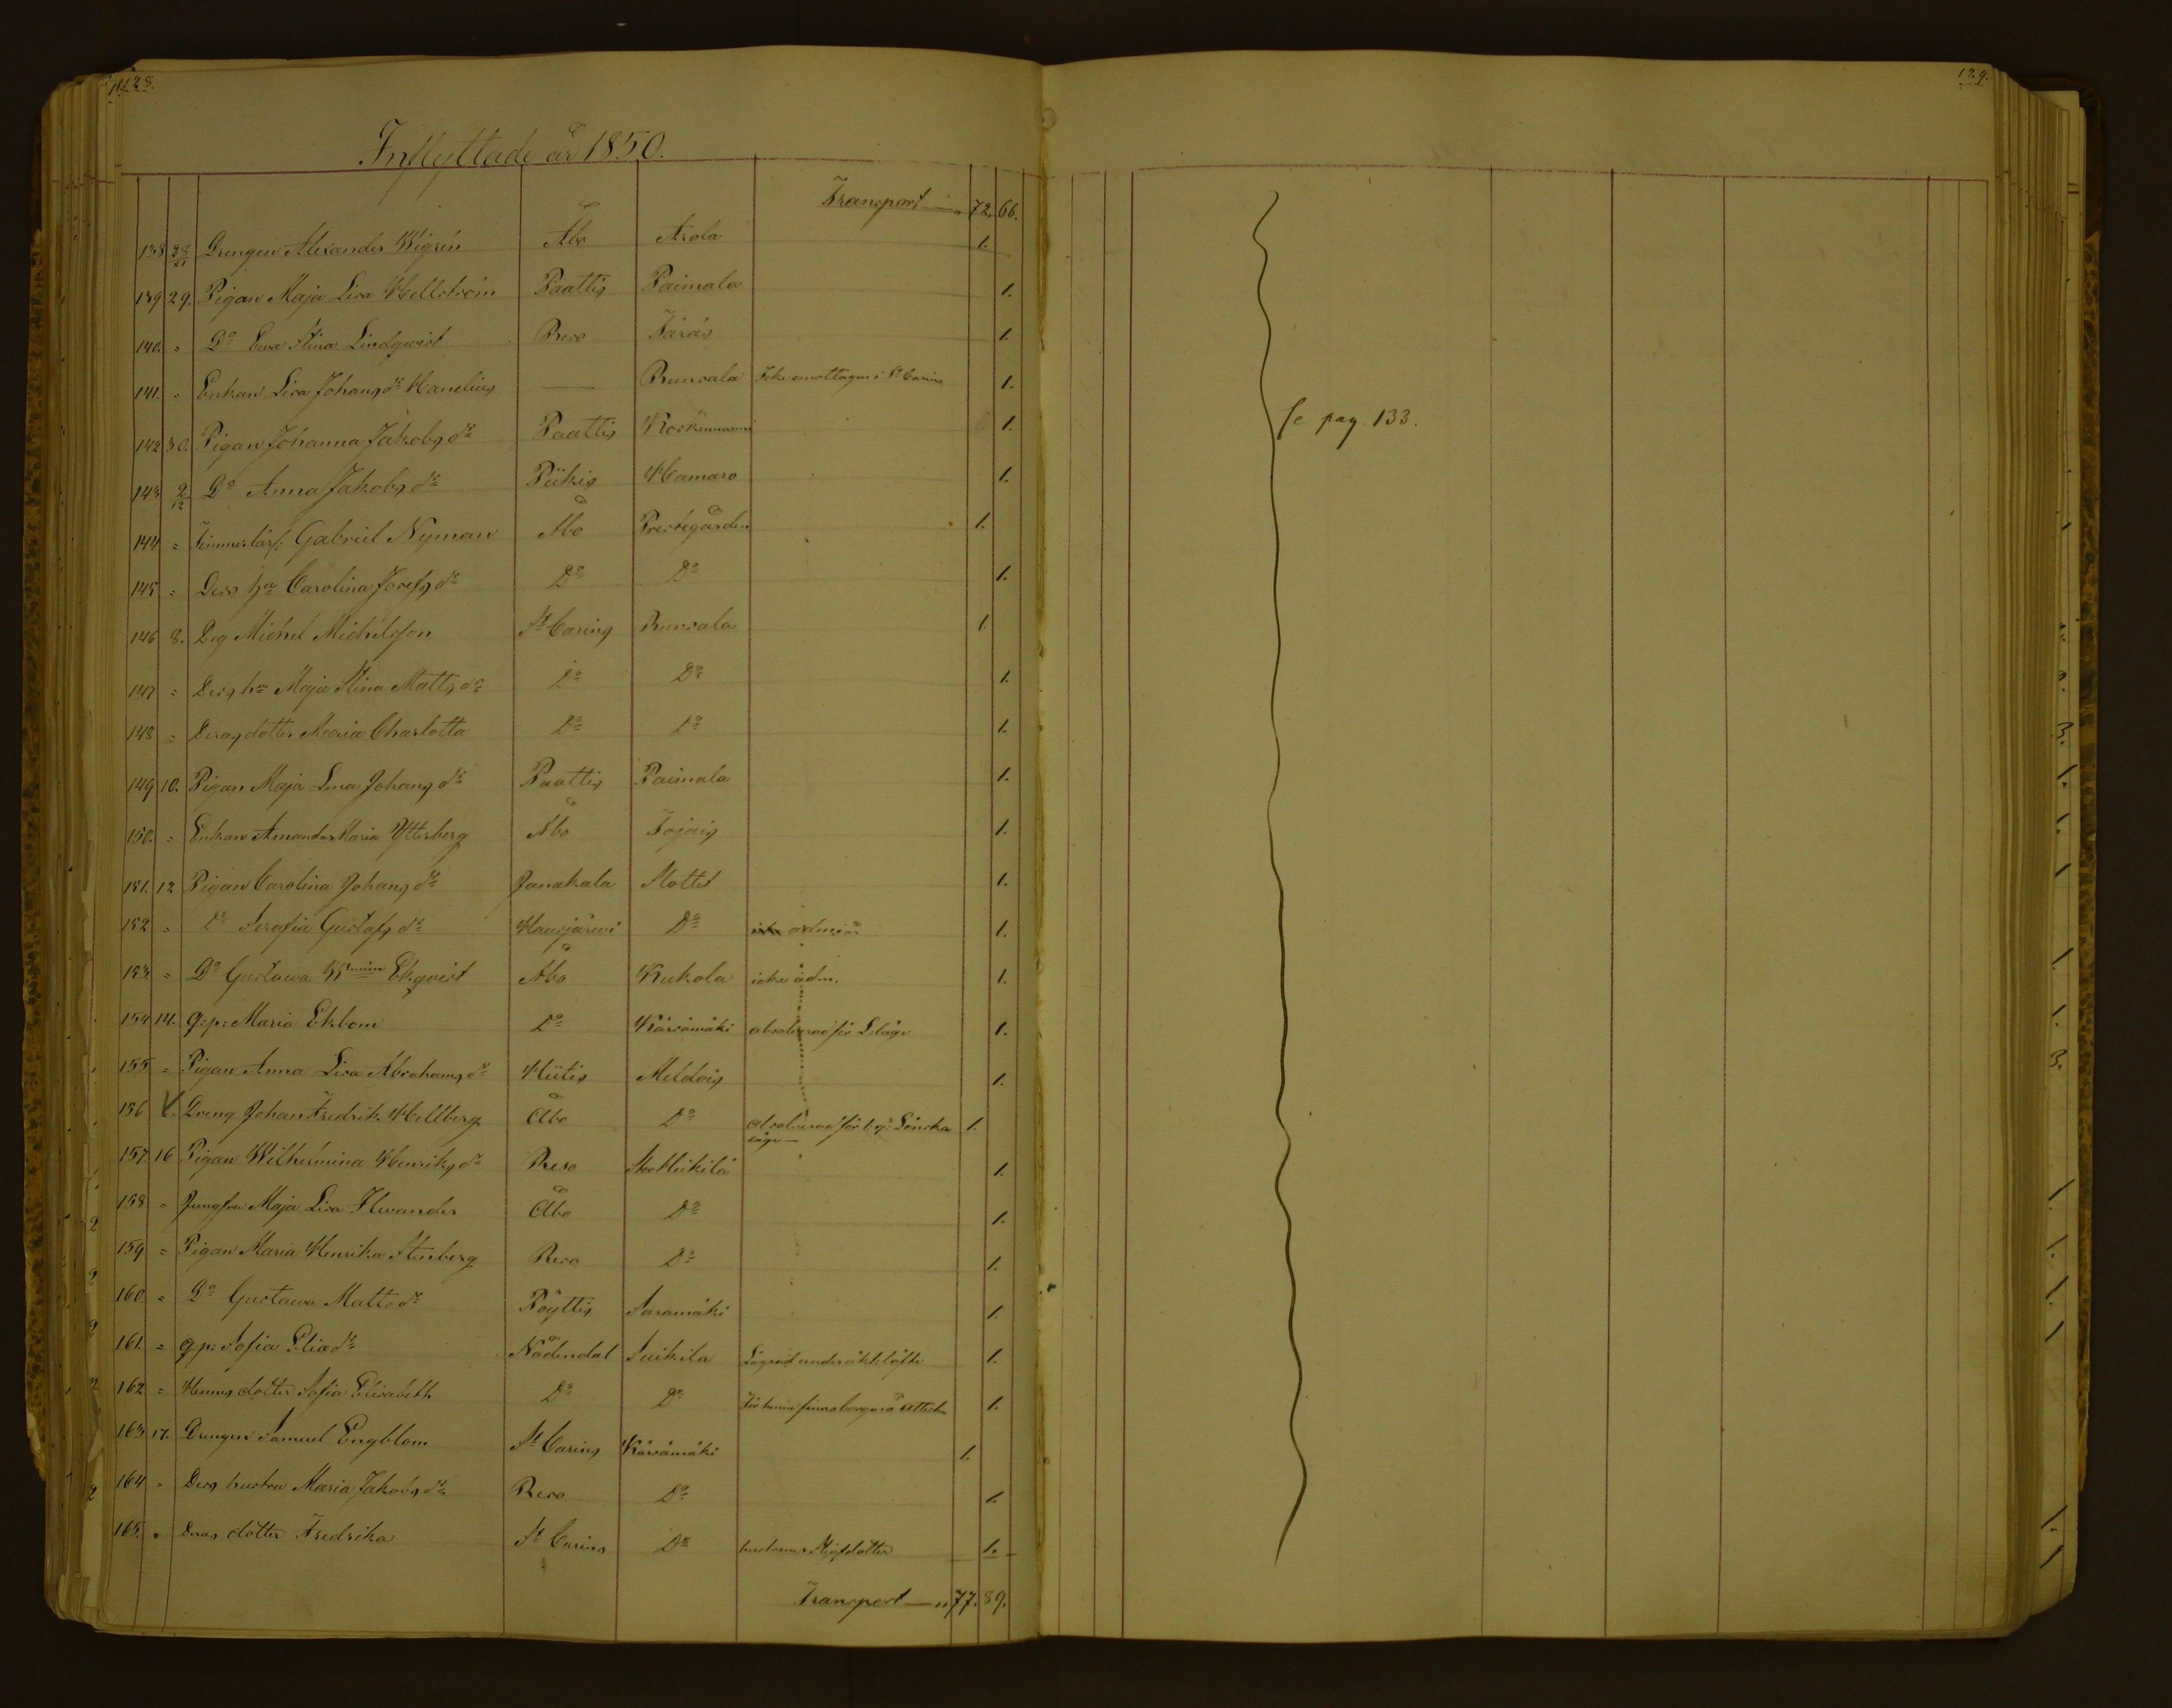 128.
Inflyttade år 1850.
Transport — " 72. 66.
138 28/11 Drengen Alexander Wigrén Åbo Arola 1.
139 29. Pigan Maja Lisa Hellström Paattis Paimala 1.
140. = Do Ewa Stina Lindqwist Reso 1.
141. = Enkan Lisa Johansdr Hanelius — Runsala Icke emottagen i St Carins 1.
142 30. Pigan Johanna Jakobsdr Paattis 1.
143 2/12 Do Anna Jakobsdr Piikis Hamaro 1.
144 = Gabriel Nyman Åbo Prestegården 1.
145 = Dess hu Carolina Josefsdr Do Do 1.
146 8. Drg Michel Michelsson St Carins Runsala 1.
147 = Dess hu Maja Stina Mattsdr Do Do 1.
148 = Deras dotter Maria Charlotta Do Do 1.
149 10. Pigan Maja Lena Johansdr Paattis Paimala 1.
150. = Enkan Amanda Maria Ytterberg Åbo Tojais 1.
151. 12 Pigan Carolina Johansdr Janakala Slottet 1.
152 = Do Serafia Gustafsdr Hausjärwi Do 1.
153. = Do Gustawa Wmina Ekqvist Åbo Kukola icke adm. 1.
154 14. q:p: Maria Ekbom Do Kärsämäki absolverad för Lvläge 1.
155 = Pigan Anna Lisa Abrahamsdr Hiitis Meldois 1.
156 Dreng Johan Fredrik Hellberg Åbo Do absolverad för 1.
157 16 Pigan Wilhelmina Henriksdr Reso Stor Heikilä 1.
158 = Jungfru Maja Lisa Ilvander Åbo Do 1.
159 = Pigan Maria Henrika Stenberg Reso Do 1.
160. = Do Gustawa Mattsdr Pöyttis Saramäki 1.
161. = q.p: Sofia Eliædr Nådendal Suikila Lägrad under äkt. löfte 1.
162 = Hennes dotter Sofia Elisabeth Do Do 1.
163 17. Drengen Samuel Engblom St Carins Kärsämäki 1.
164 = Dess hustru Maria Jakobsdr Reso Do 1.
165. = Deras dotter Fredrika St Carins Do hustruns Stjufdotter 1.
Transport — " 77. 89.
129.
Se pag. 133.